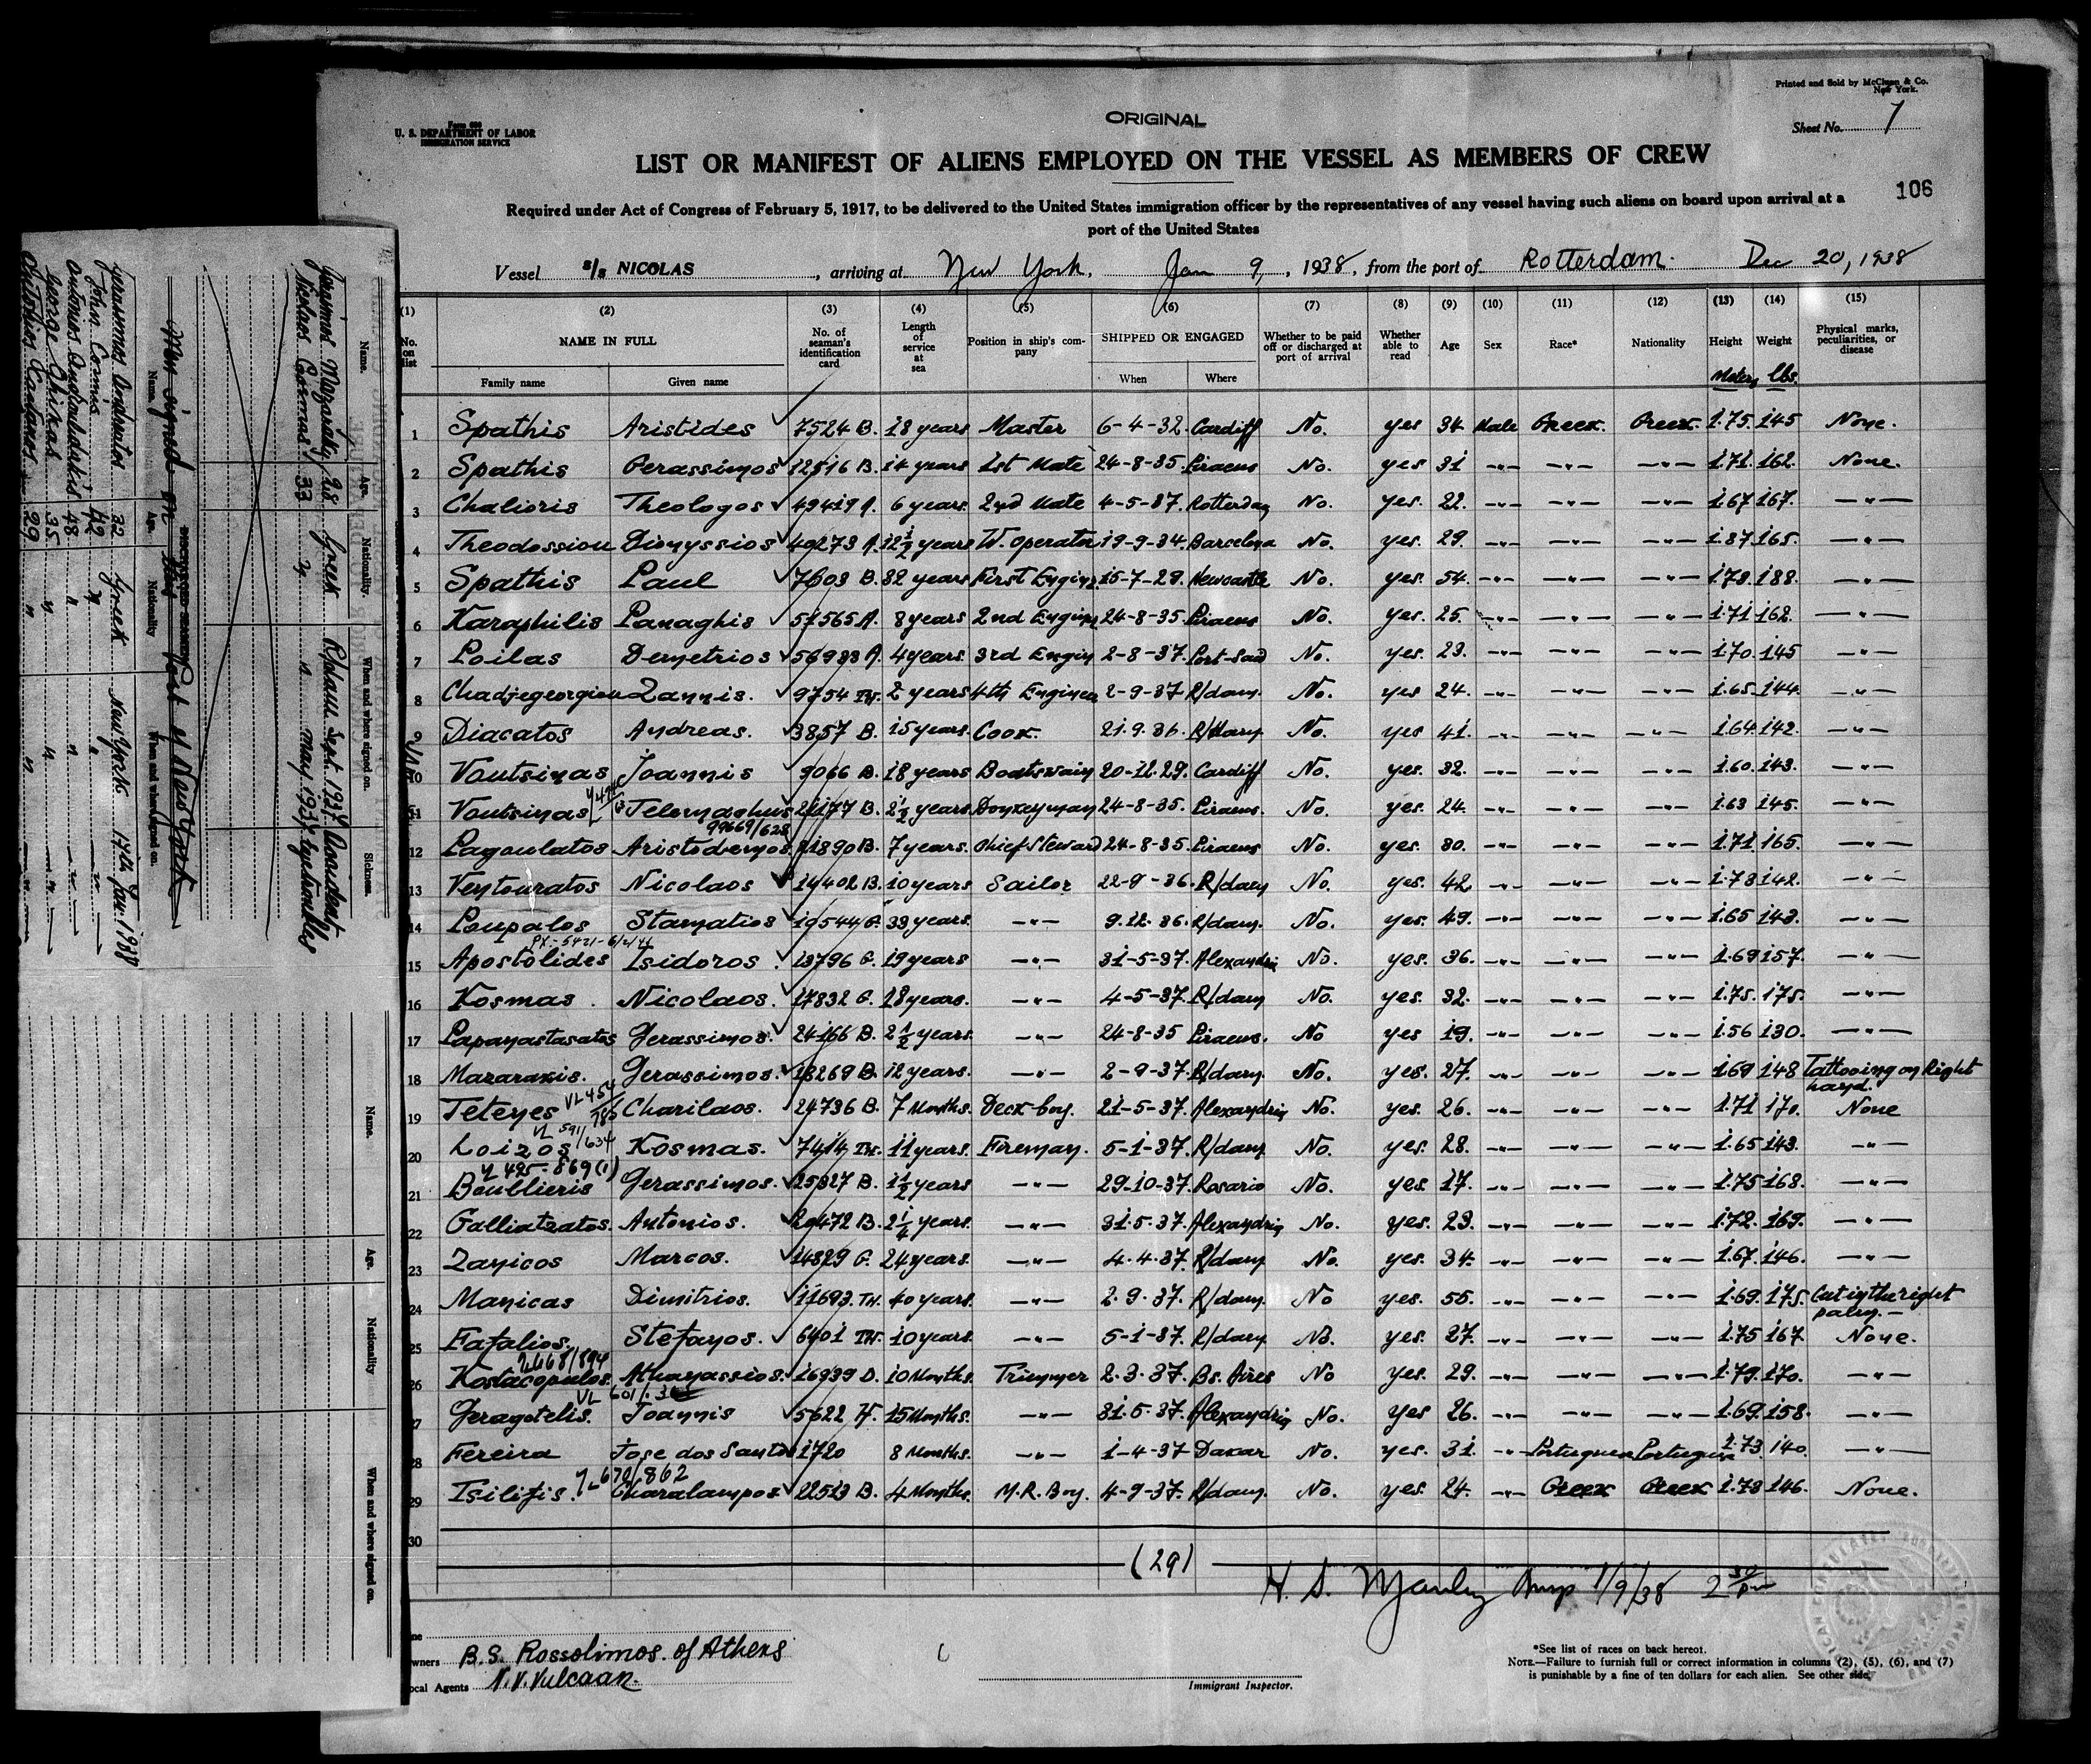 Printed and Sold by McClean & Co.
New York.
ORIGINAL
Form 680
U. S. DEPARTMENT OF LABOR
IMMIGRATION SERVICE
Sheet No. 1
LIST OR MANIFEST OF ALIENS EMPLOYED ON THE VESSEL AS MEMBERS OF CREW
106
Required under Act of Congress of February 5, 1917, to be delivered to the United States immigration officer by the representatives of any vessel having such aliens on board upon arrival at a
port of the United States
Vessel s/s NICOLAS, arriving at New York, Jan 9, 1938, from the port of Rotterdam. Dec 20, 1938
(1) (2) (3) (4) (5) (6) (7) (8) (9) (10) (11) (12) (13) (14) (15)
No. on list NAME IN FULL No. of seaman's identification card Length of service at sea Position in ship's company SHIPPED OR ENGAGED Whether to be paid off or discharged at port of arrival Whether able to read Age Sex Race* Nationality Height Weight Physical marks, peculiarities, or disease
Family name Given name When Where Meters lbs.
1 Spathis Aristides 7524 B. 18 years Master 6-4-32. Cardiff No. yes 34. Male Greek. Greek. 1.75. 145 None.
2 Spathis Gerassimos 12516 B. 14 years 1st Mate 24-8-35. Piraeus No. yes 31 -"- -"- -"- 1.71. 162. None.
3 Chalioris Theologos 49419 A. 6 years 2nd Mate 4-5-37. Rotterdam No. yes. 22. -"- -"- -"- 1.67 167. -"-
4 Theodossiou Dionyssios 49273 A. 12 1/2 years W. operator 19-9-34. Barcelona No. yes. 29. -"- -"- -"- 1.87. 165. -"-
5 Spathis Paul 7603 B. 32 years First Engin. 15-7-29. Newcastle No. yes. 54. -"- -"- -"- 1.78. 188. -"-
6 Karaphilis Panaghis 57565 A. 8 years 2nd Engin. 24-8-35. Piraeus No. yes. 25. -"- -"- -"- 1.71 162. -"-
7 Loilas Demetrios 56933 A. 4 years. 3rd Engin 2-8-37. Port-Said No. yes. 23. -"- -"- -"- 1.70. 145 -"-
8 Chadjegeorgiou Zannis. 9754 TH. 2 years 4th Engineer 2-9-37 R/dam. No. yes 24. -"- -"- -"- 1.65. 144. -"-
9 Diacatos Andreas. 3857 B. 15 years. Cook. 21.9.36. R/dam No. yes 41. -"- -"- -"- 1.64. 142. -"-
10 Voutsinas Joannis 9066 B. 18 years Boatswain 20-12.29. Cardiff No. yes. 32. -"- -"- -"- 1.60. 143. -"-
11 Voutsinas Telemachus 21177 B. 2 1/2 years. Donkeyman 24-8-35. Piraeus. No. yes. 24. -"- -"- -"- 1.63 145. -"-
99669/628
12 Pagoulatos Aristodemos 21890 B. 7 years. Chief Steward 24-8-35. Piraeus No. yes. 30. -"- -"- -"- 1.71. 165. -"-
13 Ventouratos Nicolaos 14402 B. 10 years Sailor 22-9-36. R/dam No. yes. 42. -"- -"- -"- 1.78 142. -"-
14 Poupalos Stamatios 19544 G. 33 years. -"- 9.12.36. R/dam. No. yes. 49. -"- -"- -"- 1.65 143. -"-
15 Apostolides Isidoros. 13796 G. 19 years -"- 31-5-37. Alexandria No. yes. 36. -"- -"- -"- 1.69 157. -"-
16 Kosmas. Nicolaos. 17832 G. 18 years. -"- 4-5-37. R/dam No. yes. 32. -"- -"- -"- 1.75. 175. -"-
17 Papanastasatos Gerassimos. 24166 B. 2 1/2 years. -"- 24-8-35 Piraeus. No yes 19. -"- -"- -"- 1.56 130. -"-
18 Mazarakis. Gerassimos. 18269 B. 12 years. -"- 2-9-37. R/dam. No. yes. 27. -"- -"- -"- 1.69 148 Tattooing on Right hand.
19 Teteyes Charilaos. 24736 B. 7 Months. Deck boy. 21-5-37. Alexandria No. yes. 26. -"- -"- -"- 1.71 170. None
20 Loizos Kosmas. 7414 TH. 11 years. Fireman. 5-1-37. R/dam No. yes. 28. -"- -"- -"- 1.65 143. -"-
21 Boublieris Gerassimos. 25827 B. 1 1/2 years -"- 29-10-37. Rosario No. yes. 17. -"- -"- -"- 1.75 168. -"-
22 Galliatzatos. Antonios. 20472 B. 2 1/4 years. -"- 31.5.37. Alexandria No. yes. 23. -"- -"- -"- 1.72. 169. -"-
23 Zanicos Marcos. 14829 G. 24 years. -"- 4.4.37. R/dam No. yes. 34. -"- -"- -"- 1.67. 146. -"-
24 Manicas Dimitrios. 11693. TH. 40 years. -"- 2.9.37. R/dam. No yes. 55. -"- -"- -"- 1.69. 175. Cut in the right palm.-
25 Fafalios. Stefanos. 6401 TH. 10 years. -"- 5-1-37. R/dam No. yes. 27. -"- -"- -"- 1.75 167 None.
26 Kostacopulos. Athanassios. 16939 D. 10 Months. Trimmer 2.3.37. Bs. Aires No yes 29. -"- -"- -"- 1.79. 170. -"-
27 Geragotelis. Joannis 5622 H. 15 Months. -"- 31.5.37. Alexandria No. yes 26. -"- -"- -"- 1.69. 158. -"-
28 Fereira Jose dos Santos 1720 8 Months. -"- 1-4-37 Dakar No. yes. 31. -"- Portuguese Portuguese 1.73 140. -"-
YL 670/862
29 Tsilifis. Charalampos 22513 B. 4 Months. M.R. Boy. 4-9-37. R/dam. No. yes. 24. -"- Greek Greek 1.78 146. None.
30
(29)
H. S. Manley Insp 1/9/38 2 30/pm
Owners B.S. Rossolimos. of Athens
Local Agents N.V. Vulcaan.
Immigrant Inspector.
*See list of races on back hereof.
NOTE.—Failure to furnish full or correct information in columns (2), (5), (6), and (7)
is punishable by a fine of ten dollars for each alien. See other side.
Name. Age. Nationality. When and where signed on. Sickness.
Gerasimos Mazarakis 28 Greek R/dam Sept. 1937 Accident
Nicolaos Cosmas 33 " " May 1937
Men signed on Port of New York
Name. Age. Nationality When and where signed on.
Gerasimos Andreatos 32 Greek New York 14th Jan. 1938
John Comis 42 " " "
Antonios 48 " " "
George Ghikas 35 " " "
29 " " "
Name. Age. Nationality When and where signed on.